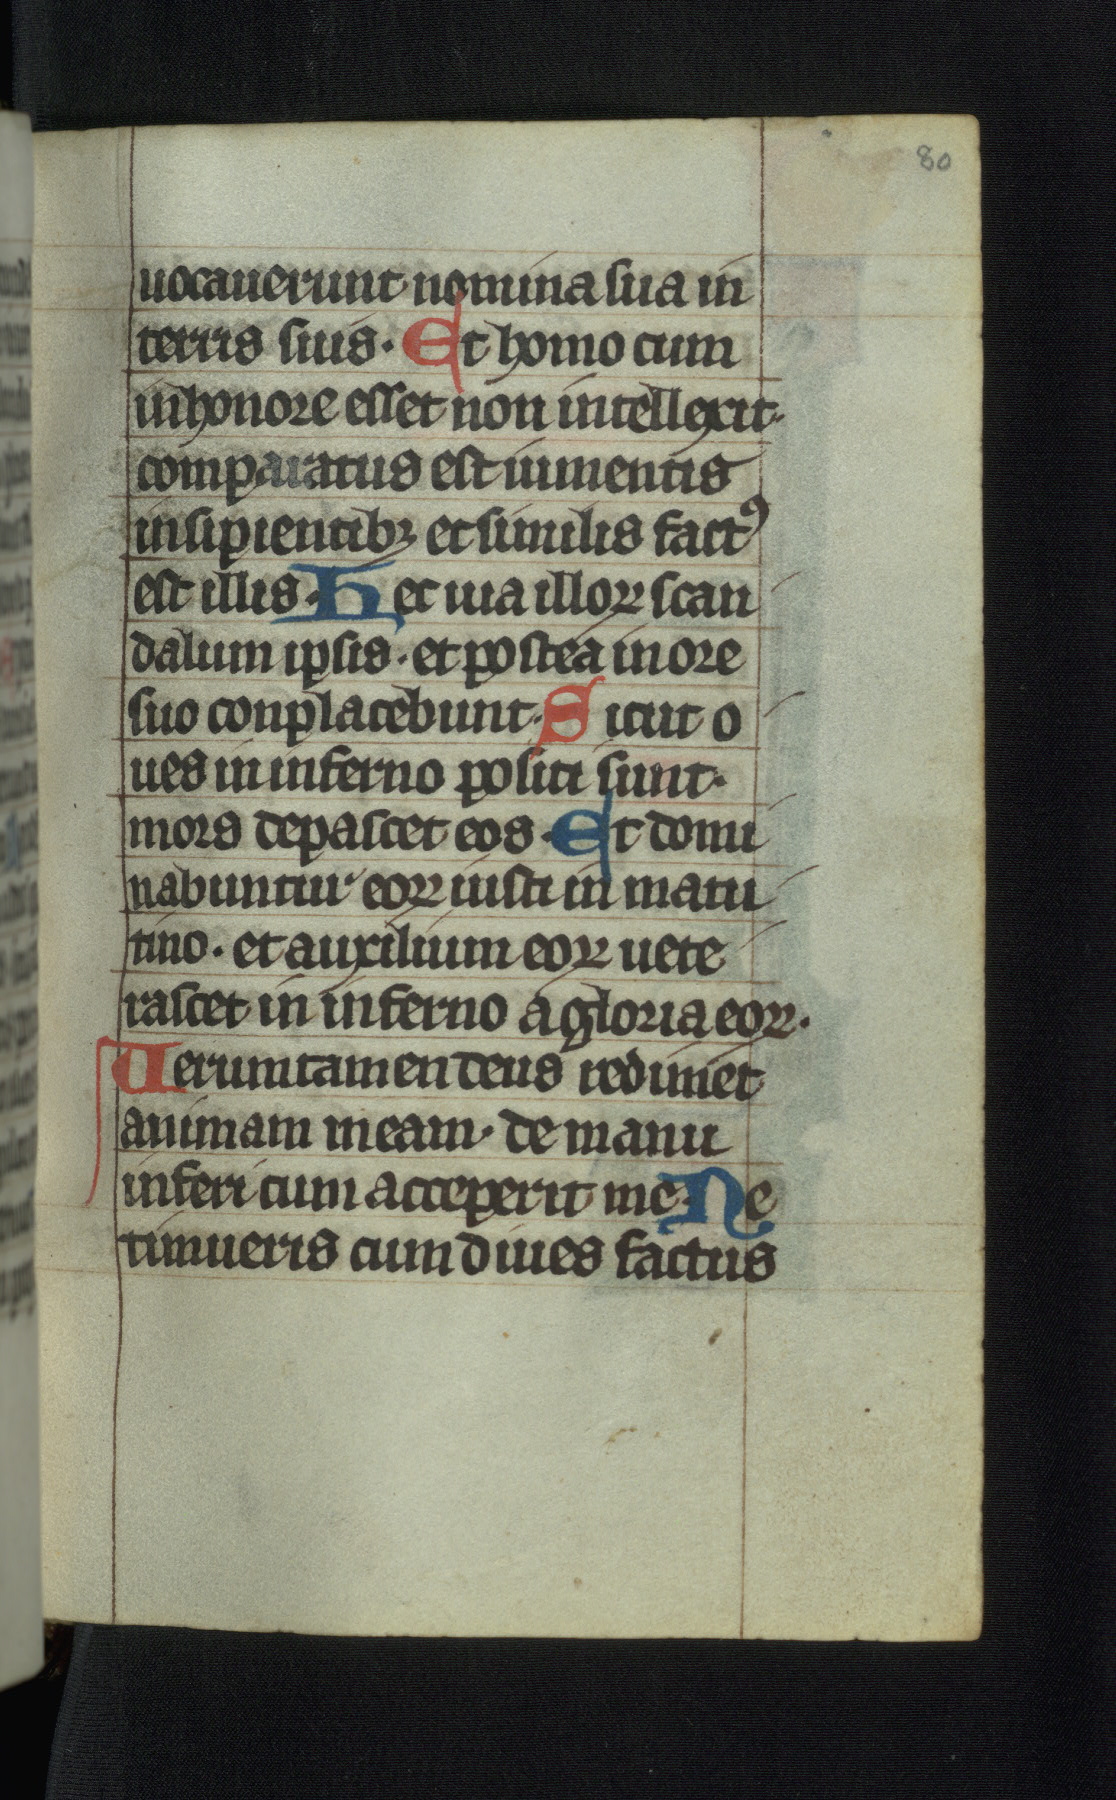 80
uocauerunt nomina sua in
terris suis. Et homo cum
in honore esset non intellexit.
comparatus est iumentis
insipientibꝫ et similis factꝰ
est illis. Hec uia illoꝝ scan
dalum ipsis. et postea in ore
suo conplacebunt. Sicut o
ues in inferno positi sunt.
mors depascet eos. Et domi
nabuntur eoꝝ iusti in matu
tino. et auxilium eoꝝ uete
rascet in inferno a gloria eoꝝ.
Uerumtamen deus redimet
animam meam. de manu
inferi cum acceperit me. Ne
timueris cum diues factus